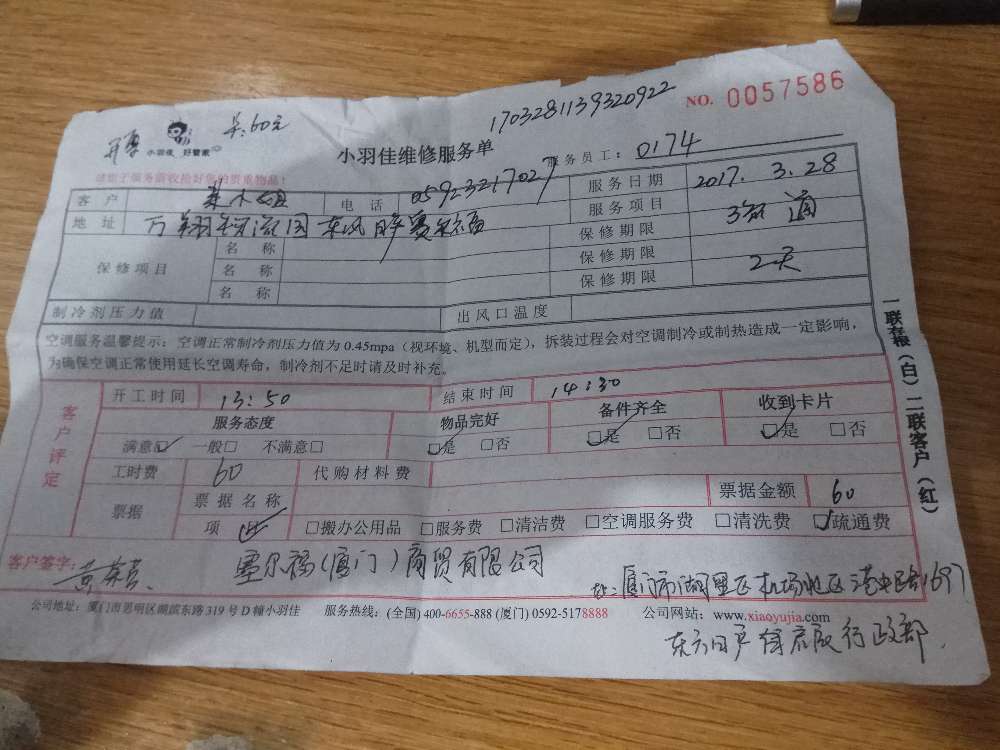 1703281139320922
NO. 0057586
小羽佳 好管家
小羽佳维修服务单
服务员工：0174
客户 小姐 电话 05923217027 服务日期 2017.3.28
地址 服务项目 疏通
保修项目 名称 保修期限
名称 保修期限 2天
名称 保修期限
制冷剂压力值 出风口温度
空调服务温馨提示：空调正常制冷剂压力值为0.45mpa（视环境、机型而定），拆装过程会对空调制冷或制热造成一定影响，
为确保空调正常使用延长空调寿命，制冷剂不足时请及时补充。
一联存根（白）二联客户（红）
客户评定
开工时间 13:50 结束时间 14:30
服务态度 物品完好 备件齐全 收到卡片
满意☑ 一般□ 不满意□ ☑是 □否 ☑是 □否 ☑是 □否
工时费 60 代购材料费
票据 票据名称 票据金额 60
项 □搬办公用品 □服务费 □清洁费 □空调服务费 □清洗费 ☑疏通费
客户签字：
塞尔福（厦门）商贸有限公司
厦门市湖里区机场北区
公司地址：厦门市思明区湖滨东路319号D幢小羽佳 服务热线：(全国) 400-6655-888 (厦门) 0592-5178888 公司网站：www.xiaoyujia.com
行政部